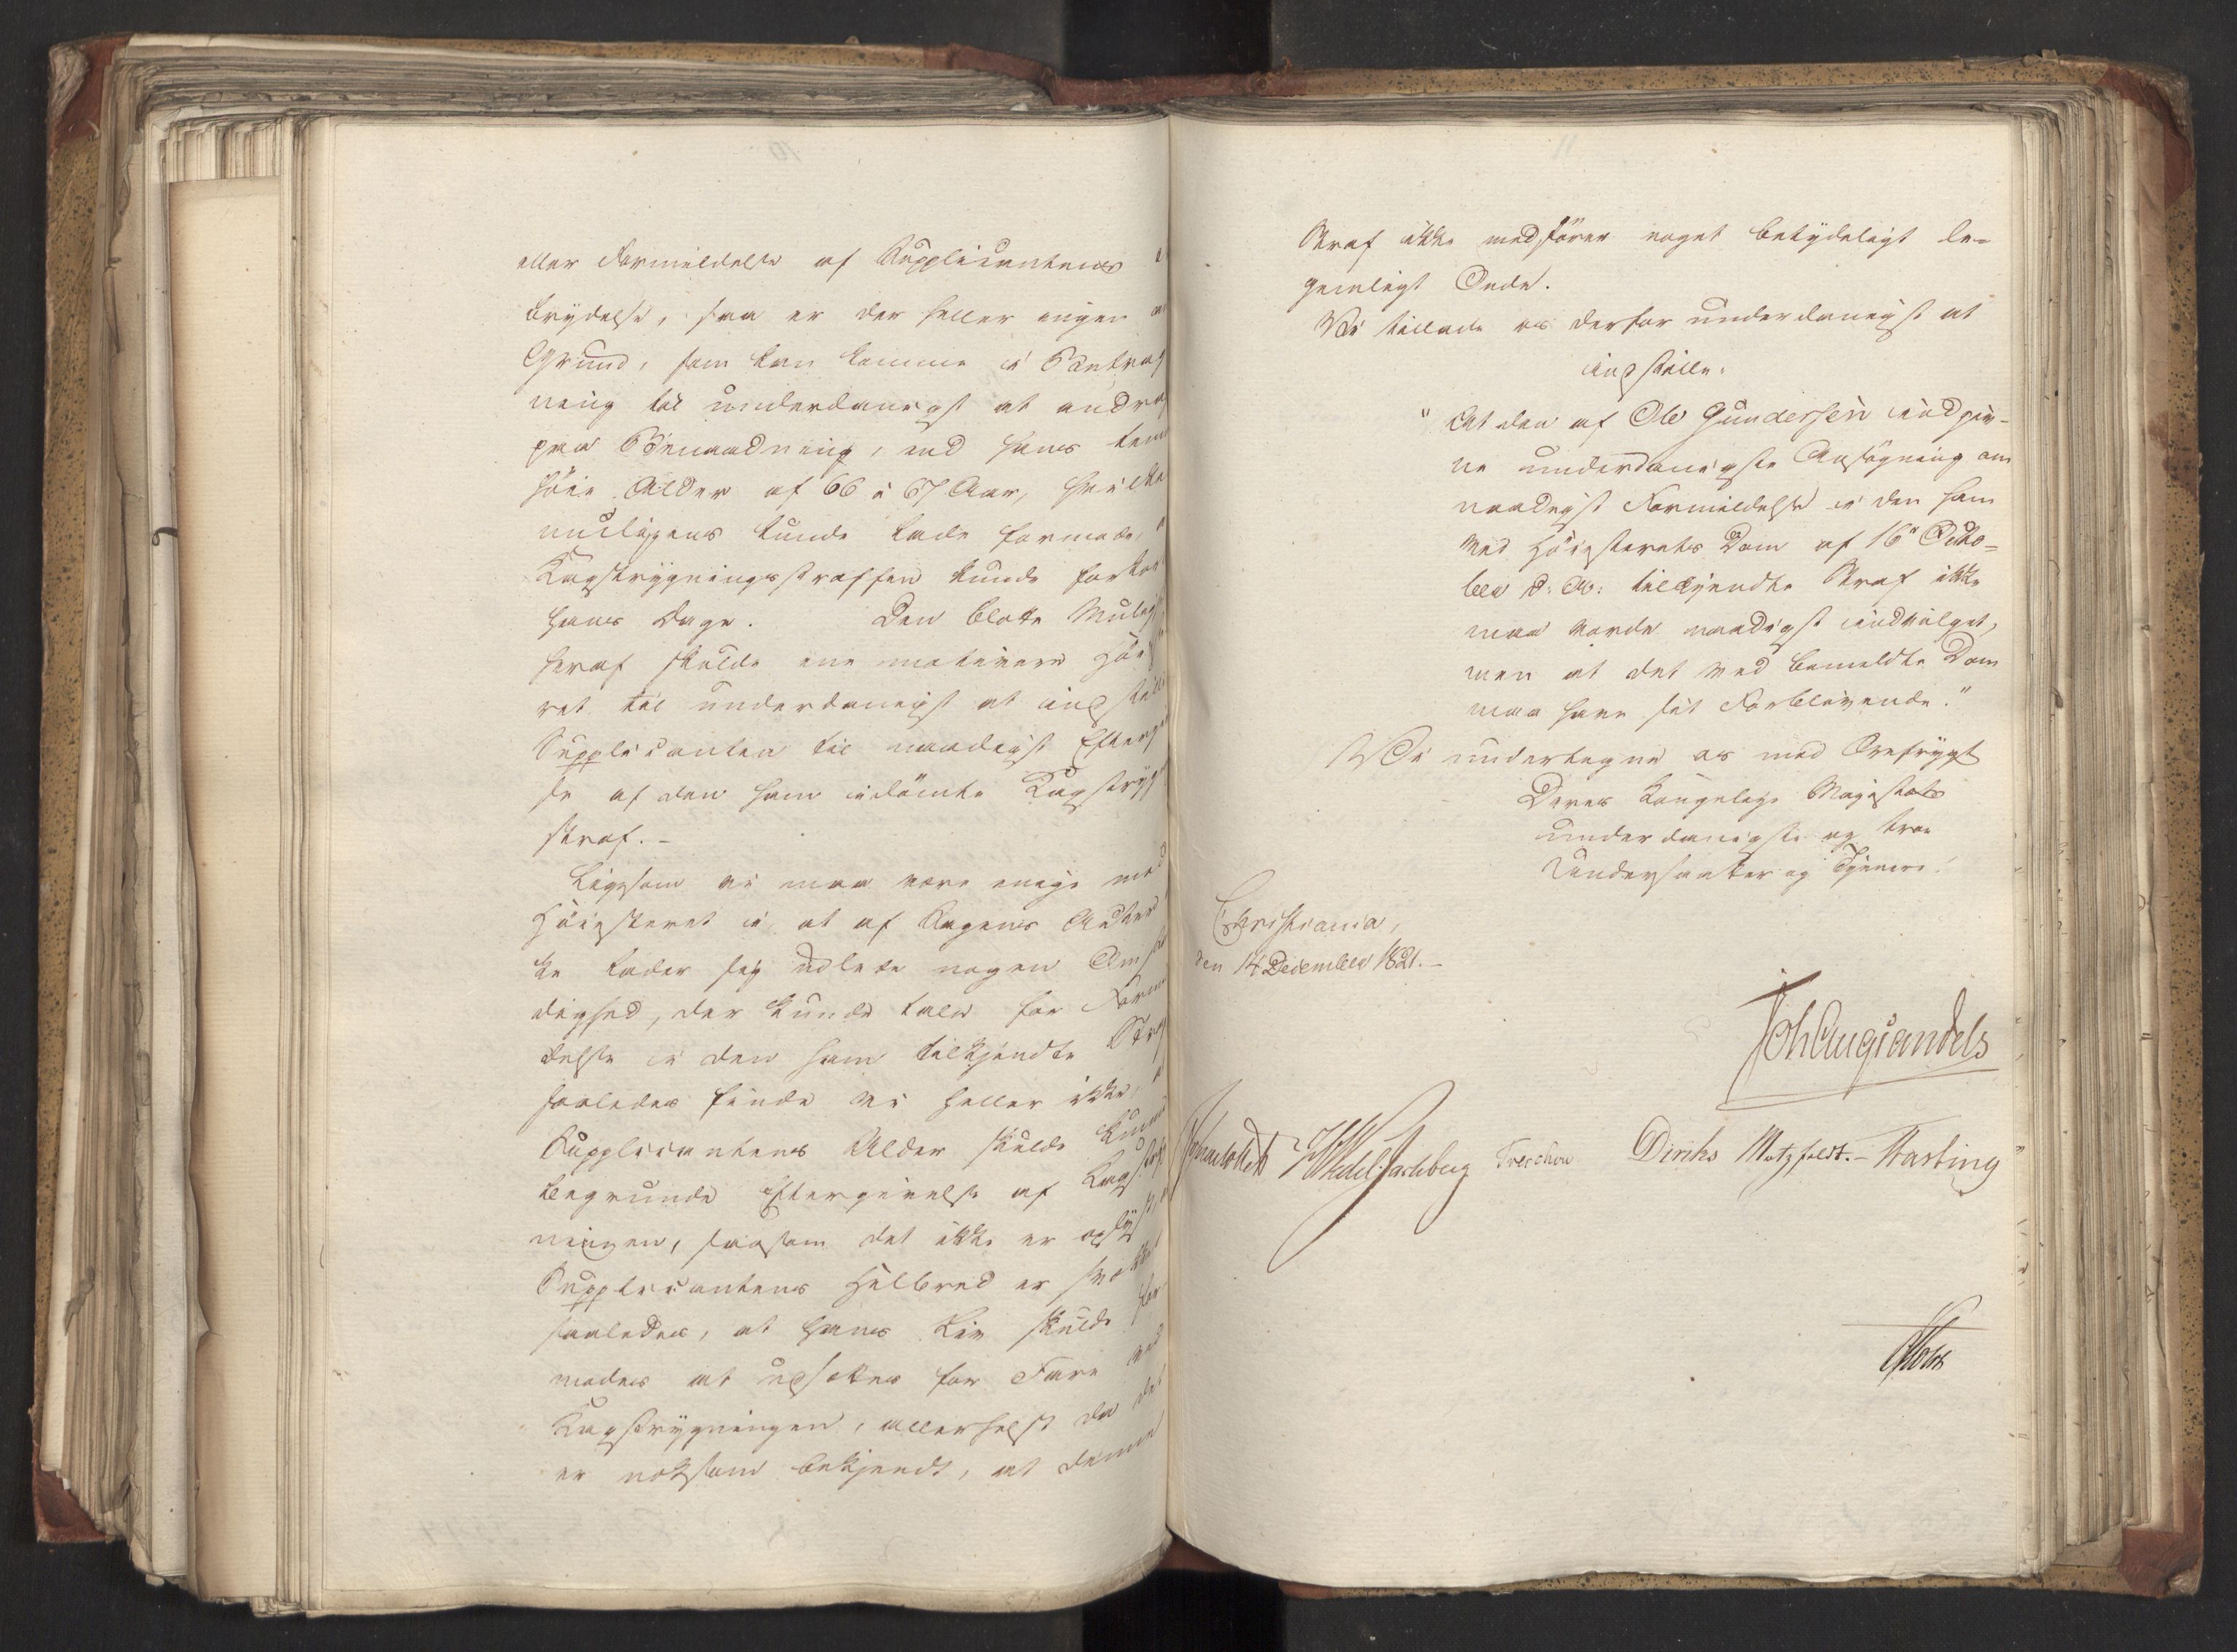 eller Formildelse af Supplicantens
brydelse, saa er der heller ingen
Grund, som kan komme i Betrag
ning til underdanigst at andra
paa Benaadning, end hans tem
höie Alder af 66 à 67 Aar, hvilke
muligens kunde lade formode,
Kagstrygningsstraffen kunde forkor
hans Dage. Den blotte Mulig
heraf skulde ene motivere Höi
ret til underdanigst at indstille
Supplicanten til naadigst Eftergi
se af den ham idömte Kagstryg
straf.-
Ligesom vi maa være enige med
Höiesteret i, at af Sagens Acter
ke lader sig udlede nogen Omstæn
dighed, der kunde tale for Formil
delse i den ham tilkjendte Straf
saaledes finde vi heller ikke,
Supplicantens Alder skulde kunne
begrunde Eftergivelse af Kagstryg
ningen, saasom det ikke er oplyst,
Supplicantens Helbred er svækket
saaledes, at hans Liv skulde for
modes at udsættes for Fare ved
Kagstrygningen, allerhelst da det
er noksom bekjendt, at denne
Straf ikke medförer noget betydeligt le-
gemligt Onde.
Vi tillade os derfor underdanigst at
indstille:
"At den af Ole Gundersen indgiv-
ne underdanigste Ansögning om
naadigst Formildelse i den ham
ved Höiesterets Dom af 16de Octo-
ber d: A: tilkjendte Straf ikke
maa vorde naadigst indvilget,
men at det ved bemeldte Dom
maa have sit Forblivende."
Vi undertegne os med Ærefrygt
Deres Kongelige Majestæts
underdanigste og troe
Undersaatter og Tjenere!
Christiania,
den 14 December 1821.-
Joh Aug Sandels
Sommerhielm HWedel Jarlsberg Treschow Diriks Motzfeldt.- Fasting
Holst